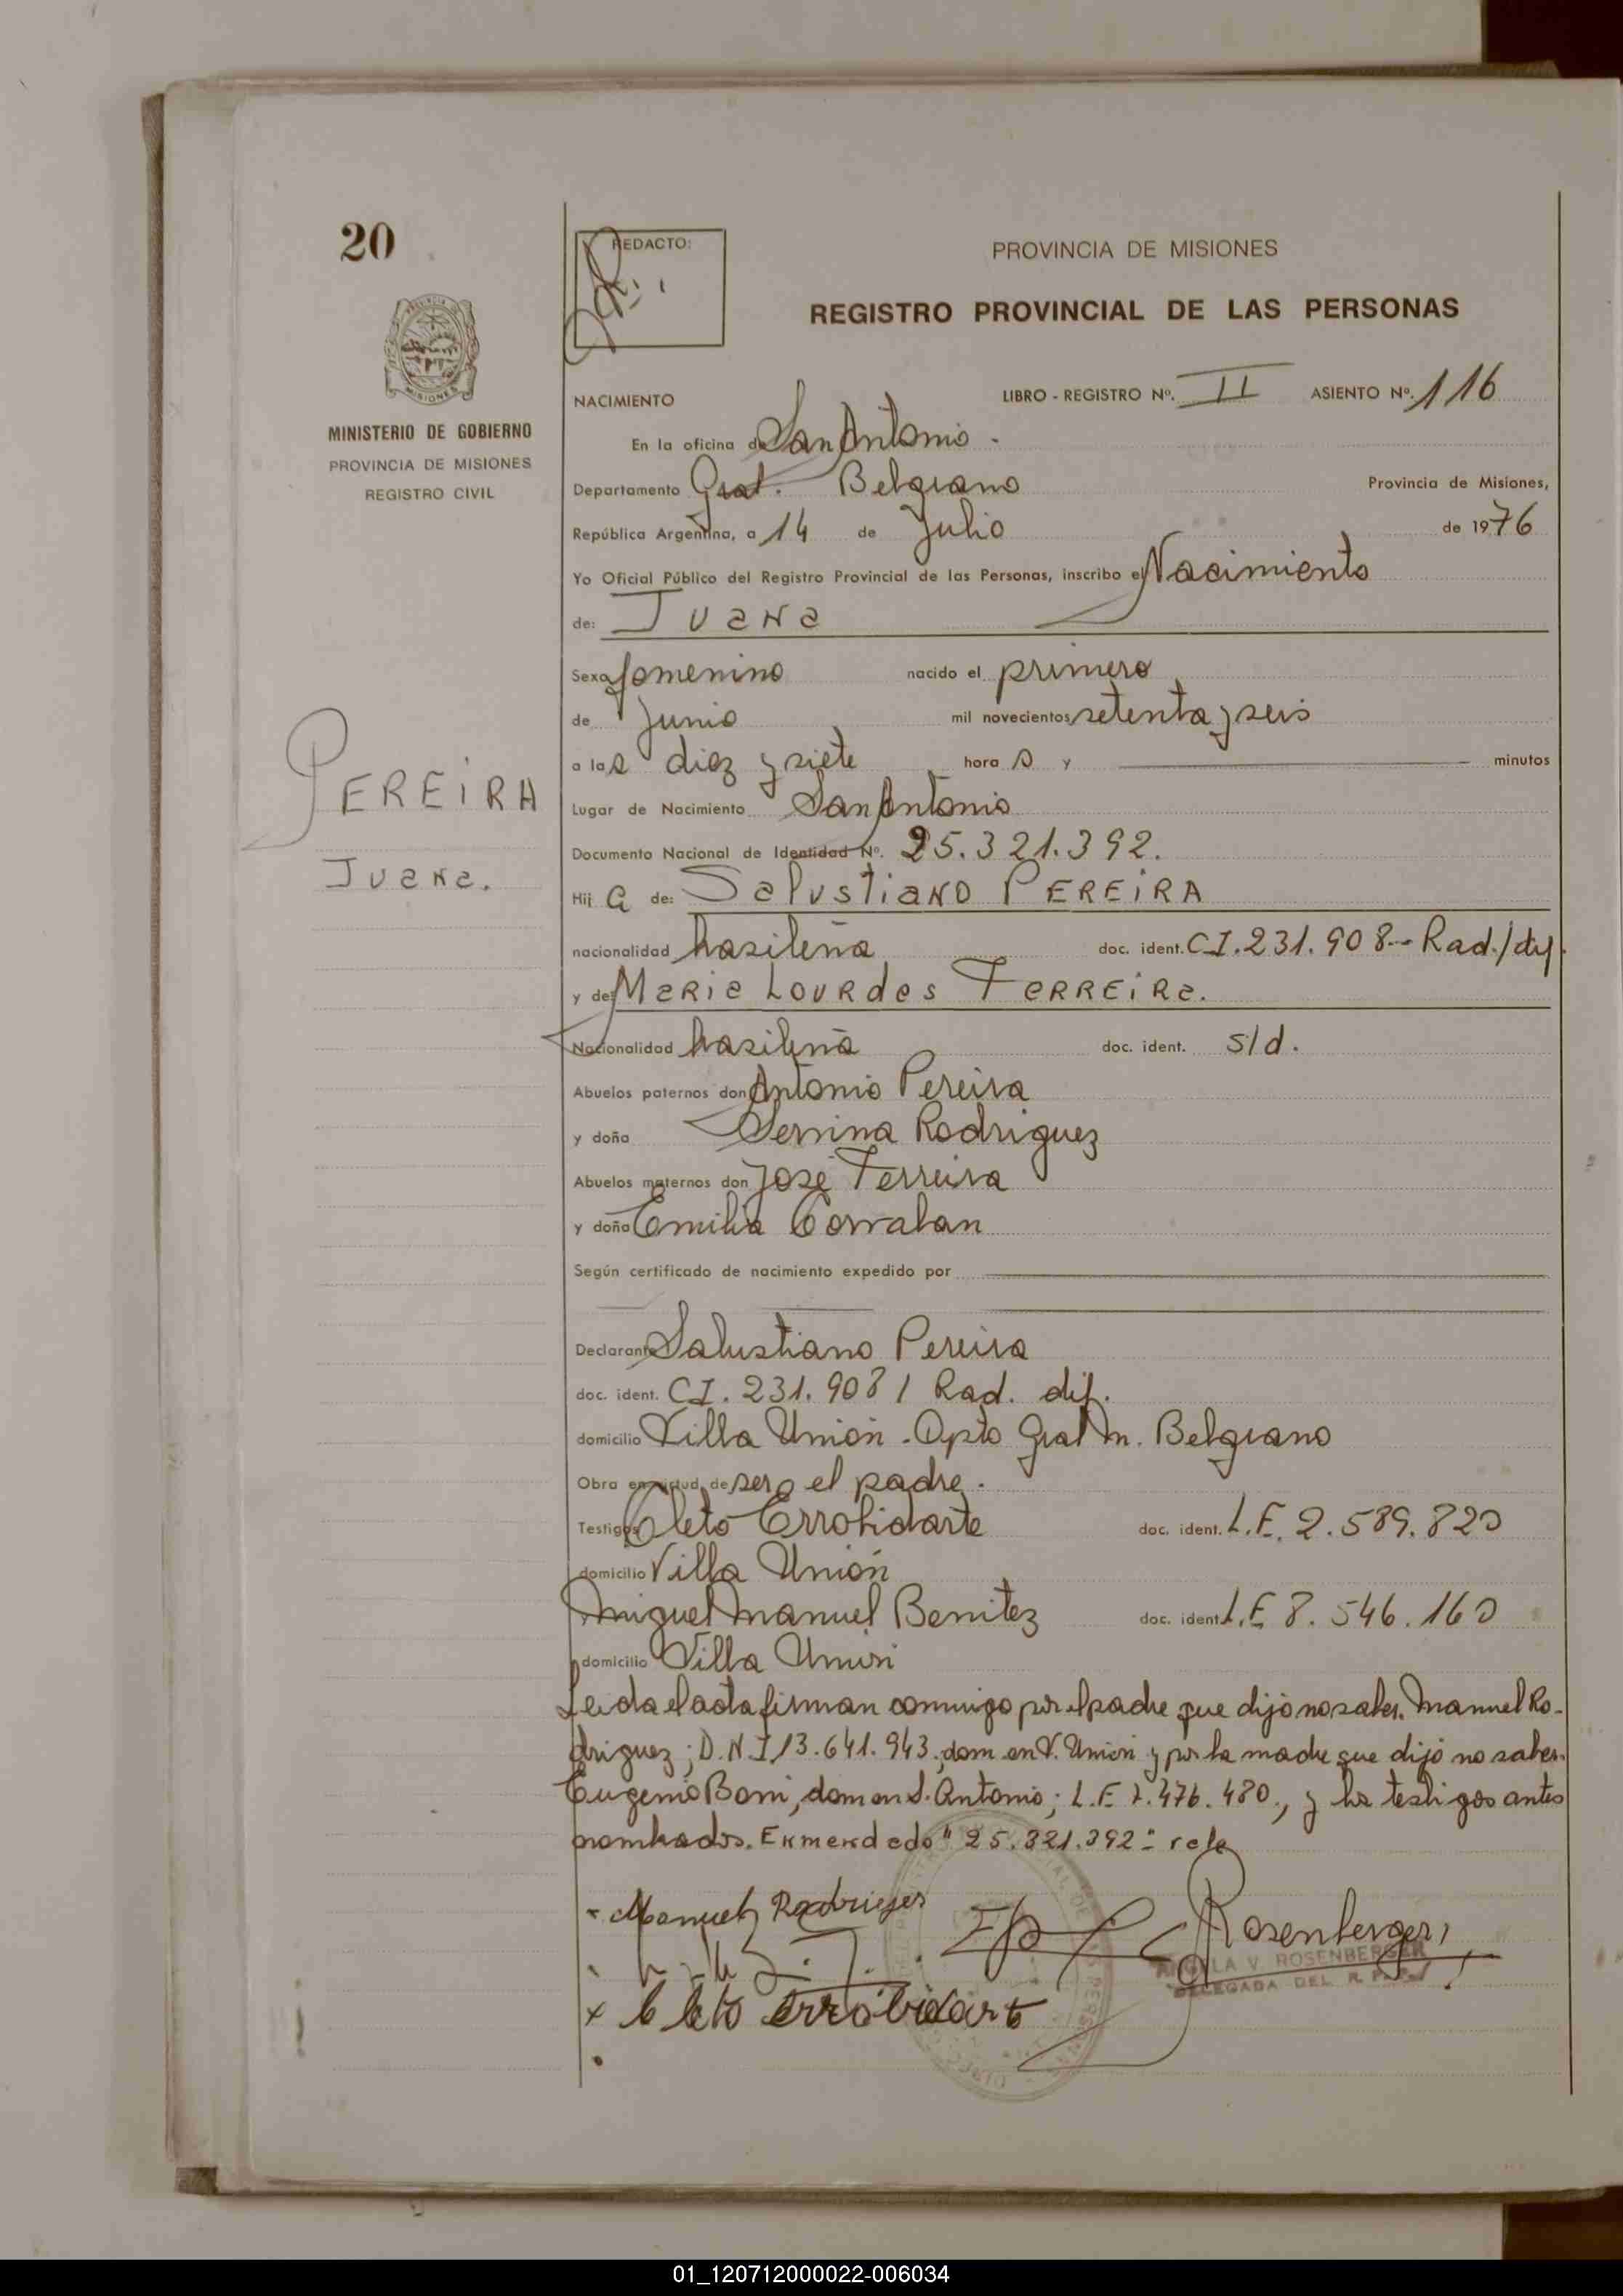 20
REDACTO:
PROVINCIA DE MISIONES
REGISTRO PROVINCIAL DE LAS PERSONAS
PROVINCIA DE MISIONES
MINISTERIO DE GOBIERNO
PROVINCIA DE MISIONES
REGISTRO CIVIL
NACIMIENTO LIBRO - REGISTRO Nº. II ASIENTO Nº. 116
En la oficina de San Antonio -
Departamento Gral. Belgrano Provincia de Misiones,
República Argentina, a 14 de Julio de 1976
Yo Oficial Público del Registro Provincial de las Personas, inscribo el Nacimiento
de: Juana
Sexo femenino nacido el primero
de junio mil novecientos setenta y seis
a las diez y siete hora s y minutos
PEREIRA
Juana.
Lugar de Nacimiento San Antonio
Documento Nacional de Identidad Nº. 25.321.392.
Hij a de: Salustiano PEREIRA
nacionalidad brasileña doc. ident. CI.231.908-- Rad./dif.
y de: Maria Lourdes FERREIRa.
Nacionalidad brasileña doc. ident. s/d.
Abuelos paternos don Antonio Pereira
y doña Rodriguez
Abuelos maternos don José Ferreira
y doña Emilia Corralan
Según certificado de nacimiento expedido por
Declarante Salustiano Pereira
doc. ident. CI. 231.908 / Rad. dif.
domicilio Villa Unión. Dpto Gral M. Belgrano
Obra en virtud de ser el padre.
Testigos Cleto Errobidarte doc. ident. L.E. 2.589.820
domicilio Villa Unión
Miguel Manuel Benitez doc. ident. L.E 8.546.160
domicilio Villa Unión
Leida el acta firman conmigo por el padre que dijo no saber, Manuel Ro-
driguez; D.N.I 13.641.943, dom en V. Unión y por la madre que dijo no saber.
Eugenio Boni, dom en S. Antonio; L.E 7.476.480., y los testigos antes
nombrados. Enmendado "25.321.392": vale
- Manuel Rodrigues
Rosenberger
ANGELA V. ROSENBERGER
DELEGADA DEL R. P. P.
x Cleto Errobidarte
01_120712000022-006034